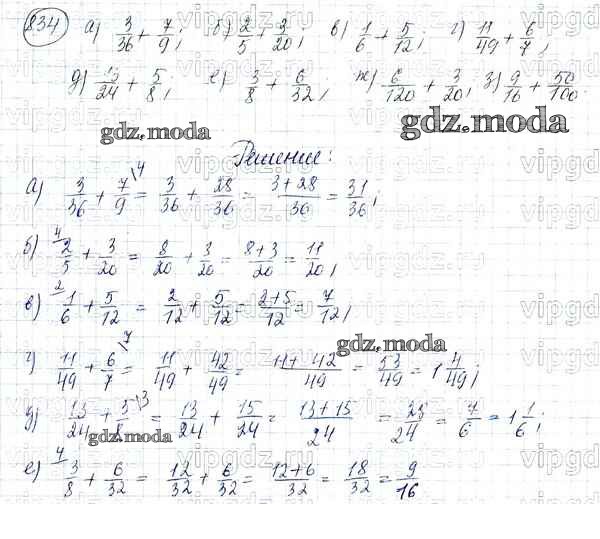 834 а) 3/36 + 7/9; б) 2/5 + 3/20; в) 1/6 + 5/12; г) 11/49 + 6/7;
д) 13/24 + 5/8; е) 3/8 + 6/32; ж) 6/120 + 3/20; з) 9/16 + 50/100.
gdz.moda
gdz.moda
Решение:
а) 3/36 + 7/9 \4 = 3/36 + 28/36 = 3+28/36 = 31/36;
б) 4/ 2/5 + 3/20 = 8/20 + 3/20 = 8+3/20 = 11/20;
в) 2/ 1/6 + 5/12 = 2/12 + 5/12 = 2+5/12 = 7/12;
gdz.moda
г) 11/49 + 6/7 \7 = 11/49 + 42/49 = 11+42/49 = 53/49 = 1 4/49;
д) 13/24 + 5/8 \3 = 13/24 + 15/24 = 13+15/24 = 28/24 = 7/6 = 1 1/6;
gdz.moda
е) 4/ 3/8 + 6/32 = 12/32 + 6/32 = 12+6/32 = 18/32 = 9/16
vipgdz.ru